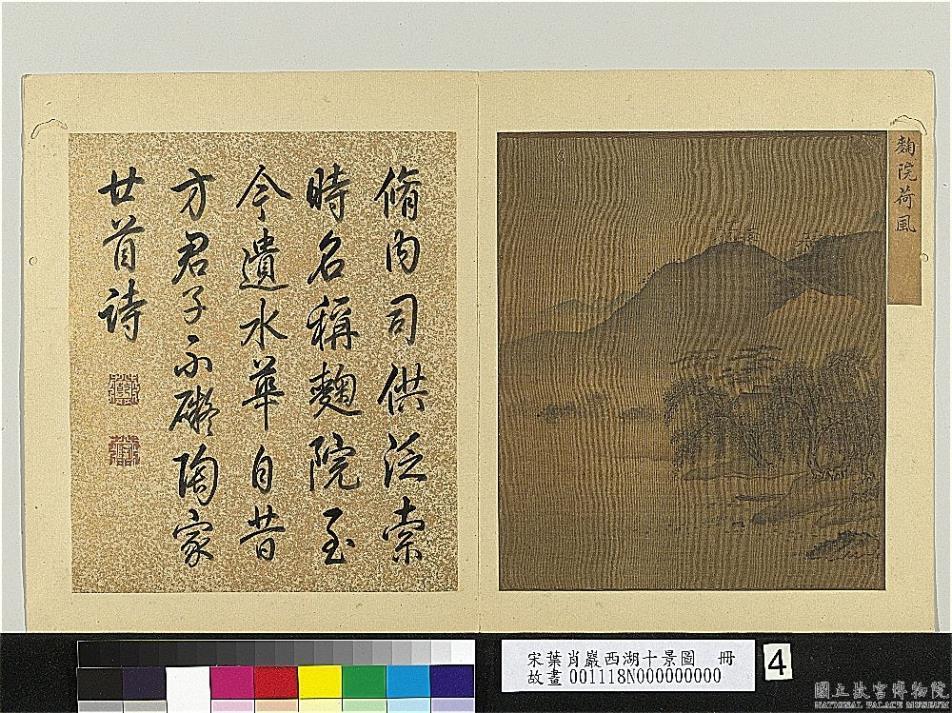 麴院荷風
脩内司供泛索
時名稱麴院至
今遺水華自昔
方君子不礙陶家
廿首詩
宋葉肖巖西湖十景圖 冊
故畫001118N000000000
4
國立故宮博物院
NATIONAL PALACE MUSEUM